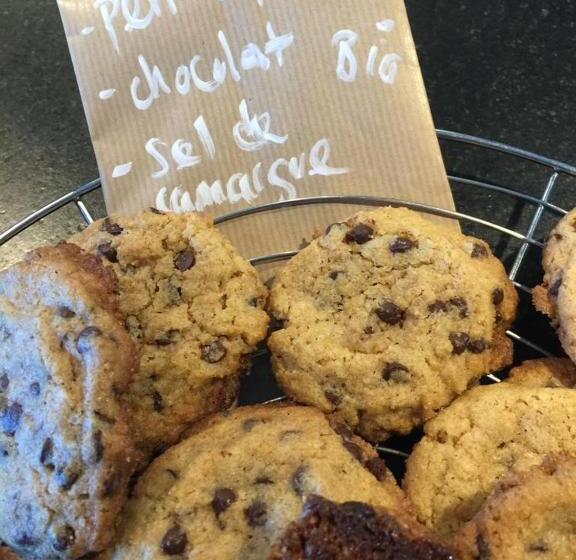 - chocolat Bio
- Sel de
camargue